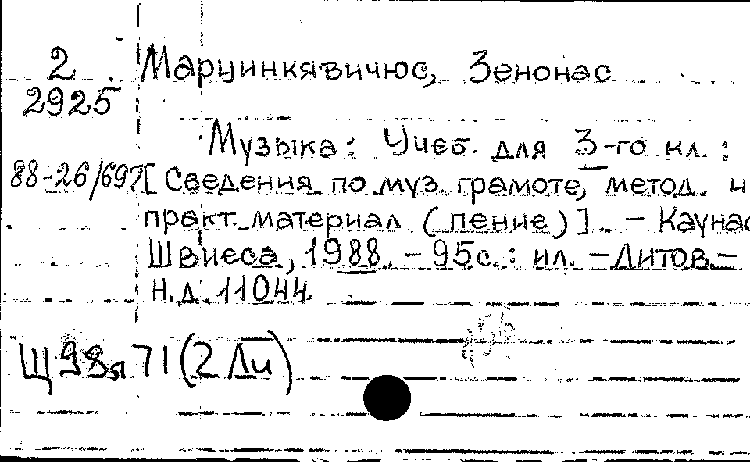 2 Марцинкявичюс, Зенонас
2925
Музыка: Учеб. для 3-го кл.:
88-26/697 [Сведения по муз. грамоте, метод. и
практ. материал (пение)]. - Каунас
Швиеса, 1988. - 95с.: ил. - Литов. -
Н.д. 11044
Щ98я71(2Ли)